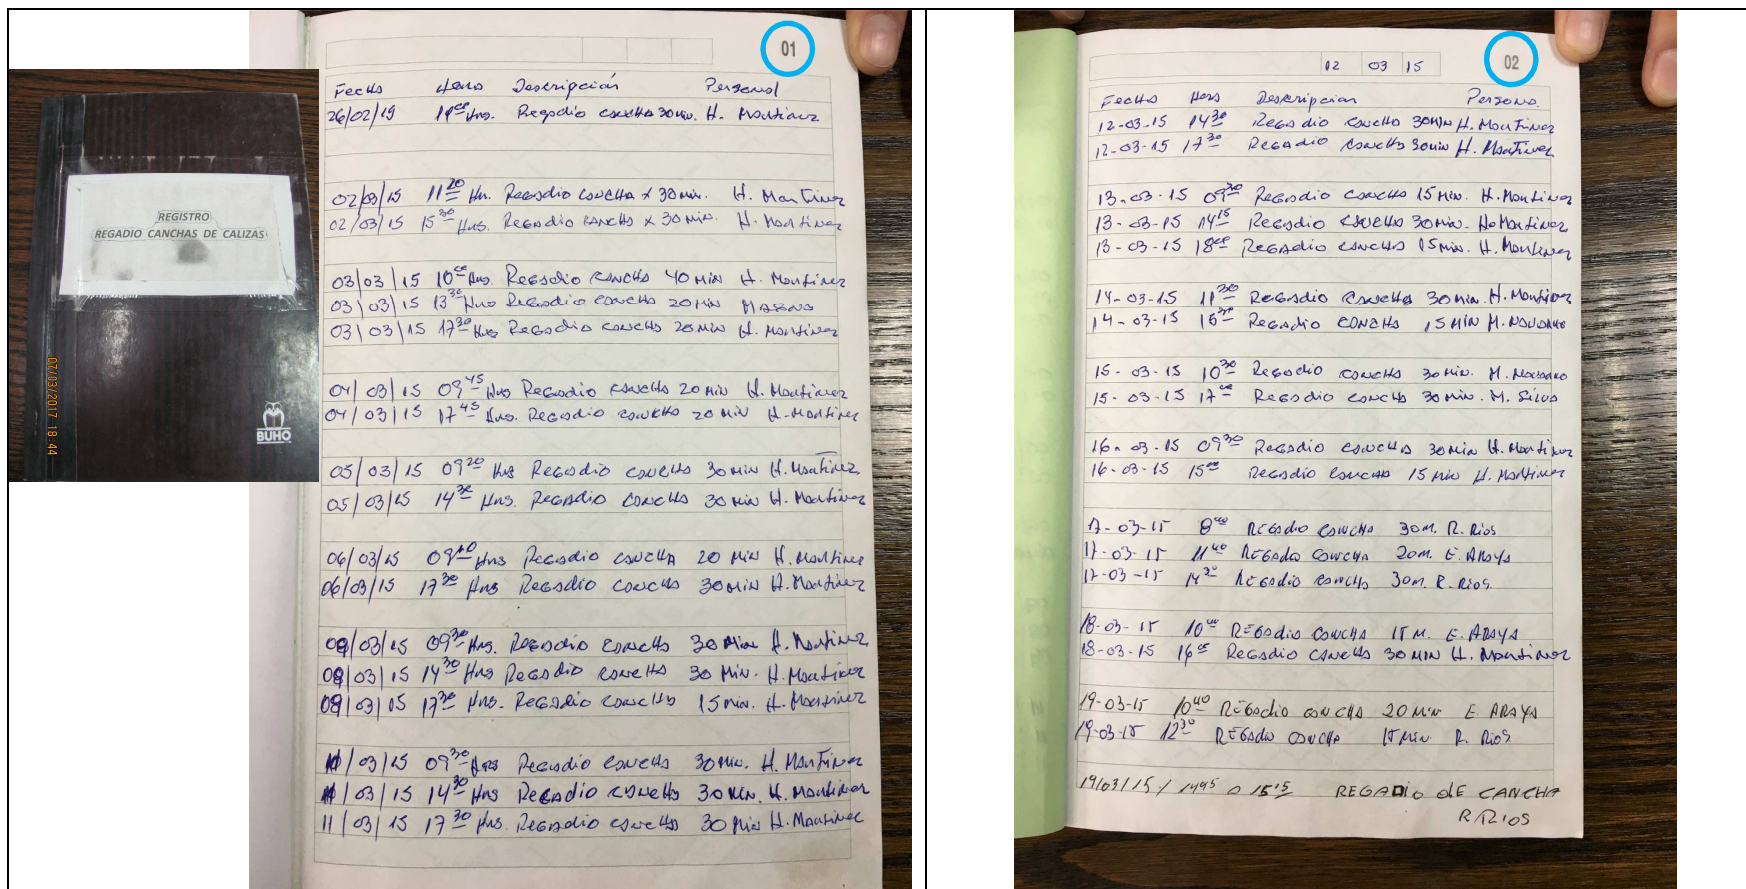 REGISTRO
REGADIO CANCHAS DE CALIZAS
07/03/2017 18:44
BUHO
01
Fecha Hora Descripción Personal
26/02/19 11⁰⁰ Hrs. Regadio cancha 30 min. H. Martinez
02/03/15 11²⁰ Hrs. Regadio cancha x 30 min. H. Martinez
02/03/15 15³⁰ Hrs. Regadio cancha x 30 min. H. Martinez
03/03/15 10⁰⁰ Hrs. Regadio cancha 40 Min H. Martinez
03/03/15 13³⁰ Hrs Regadio cancha 20 Min
03/03/15 17³⁰ Hrs Regadio cancha 20 Min H. Martinez
04/03/15 09⁴⁵ Hrs Regadio cancha 20 Min H. Martinez
04/03/15 17⁴⁵ Hrs. Regadio cancha 20 Min H. Martinez
05/03/15 09²⁰ Hrs Regadio cancha 30 Min H. Martinez
05/03/15 14³⁰ Hrs. Regadio cancha 30 Min H. Martinez
06/03/15 09¹⁰ Hrs Regadio cancha 20 Min H. Martinez
06/03/15 17³⁰ Hrs Regadio cancha 30 Min H. Martinez
09/03/15 09³⁰ Hrs. Regadio cancha 30 Min H. Martinez
09/03/15 14³⁰ Hrs Regadio cancha 30 Min. H. Martinez
09/03/15 17³⁰ Hrs. Regadio cancha 15 Min. H. Martinez
11/03/15 09³⁰ Hrs Regadio cancha 30 Min. H. Martinez
11/03/15 14³⁰ Hrs Regadio cancha 30 Min. H. Martinez
11/03/15 17³⁰ Hrs. Regadio cancha 30 Min H. Martinez
12 03 15
02
Fecha Hora Descripcion Persona.
12-03-15 14³⁰ Regadio cancha 30 Min H. Martinez
12-03-15 17³⁰ Regadio cancha 30 min H. Martinez
13-03-15 09³⁰ Regadio cancha 15 Min. H. Martinez
13-03-15 14¹⁵ Regadio cancha 30 Min. H. Martinez
13-03-15 18⁰⁰ Regadio cancha 15 Min. H. Martinez
14-03-15 11³⁰ Regadio cancha 30 Min. H. Martinez
14-03-15 Regadio cancha 15 Min M. Navarro
15-03-15 10³⁰ Regadio cancha 30 Min. M.
15-03-15 17⁰⁰ Regadio cancha 30 Min. M. Silva
16-03-15 09³⁰ Regadio cancha 30 Min H. Martinez
16-03-15 15⁰⁰ Regadio cancha 15 Min H. Martinez
17-03-15 8⁴⁰ Regadio cancha 30 M. R. Rios
17-03-15 11⁴⁰ Regado cancha 20 M. E. ARAYA
17-03-15 14³⁰ Regadio cancha 30 M. R. Rios.
18-03-15 10⁴⁰ Regadio cancha 15 M. E. ARAYA
18-03-15 16⁰⁰ Regadio cancha 30 Min H. Martinez
19-03-15 10⁴⁰ Regadio cancha 20 Min E. ARAYA
19-03-15 12³⁰ Regado cancha 15 Min R. Rios
19/03/15 / 14⁴⁵ a 15¹⁵ REGADIO dE CANCHA
R/RIOS